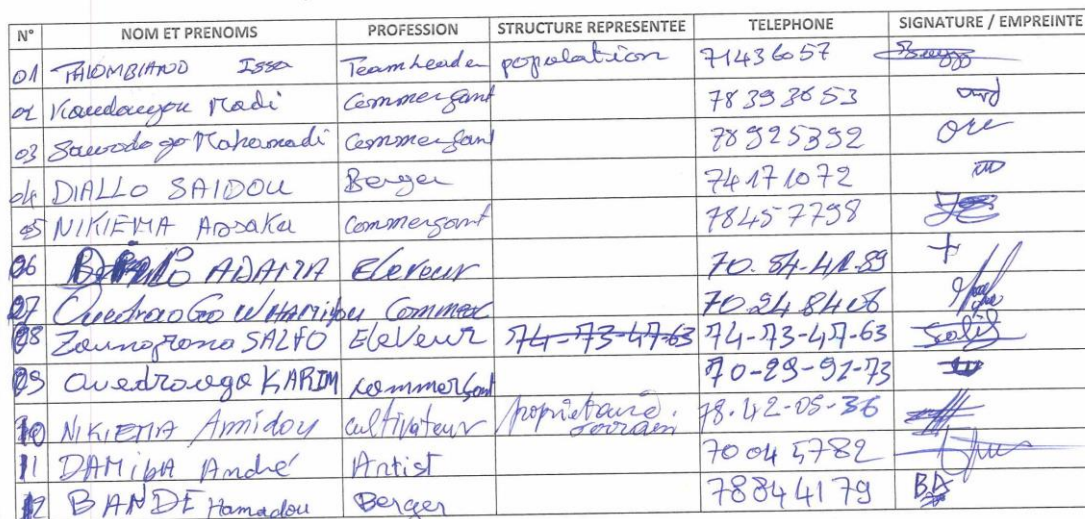 N° NOM ET PRENOMS PROFESSION STRUCTURE REPRESENTEE TELEPHONE SIGNATURE / EMPREINTE
01 THIOMBIANO Issa Teamleader population 71436057
02 Kouda Madi Commerçant 78393653
03 Sawodogo Mahamadi Commerçant 78925392
04 DIALLO SAIDOU Berger 74171072
05 NIKIEMA Assaka Commerçant 78457798
06 ADAMA Eleveur 70.84-41.89 +
07 OuedraoGo Commerc 70.24 84
08 Zoungrana SALFO EleVeur 74-73-47-63 74-73-47-63 Salif
09 Ouedraogo KARIM commerçant 70-29-92-73
10 NIKIEMA Amidou cultivateur propietaire. terrain 78.42-05-36
11 DAMiBA André Artist 7004 5782
12 BANDE Hamadou Berger 78844179 BA